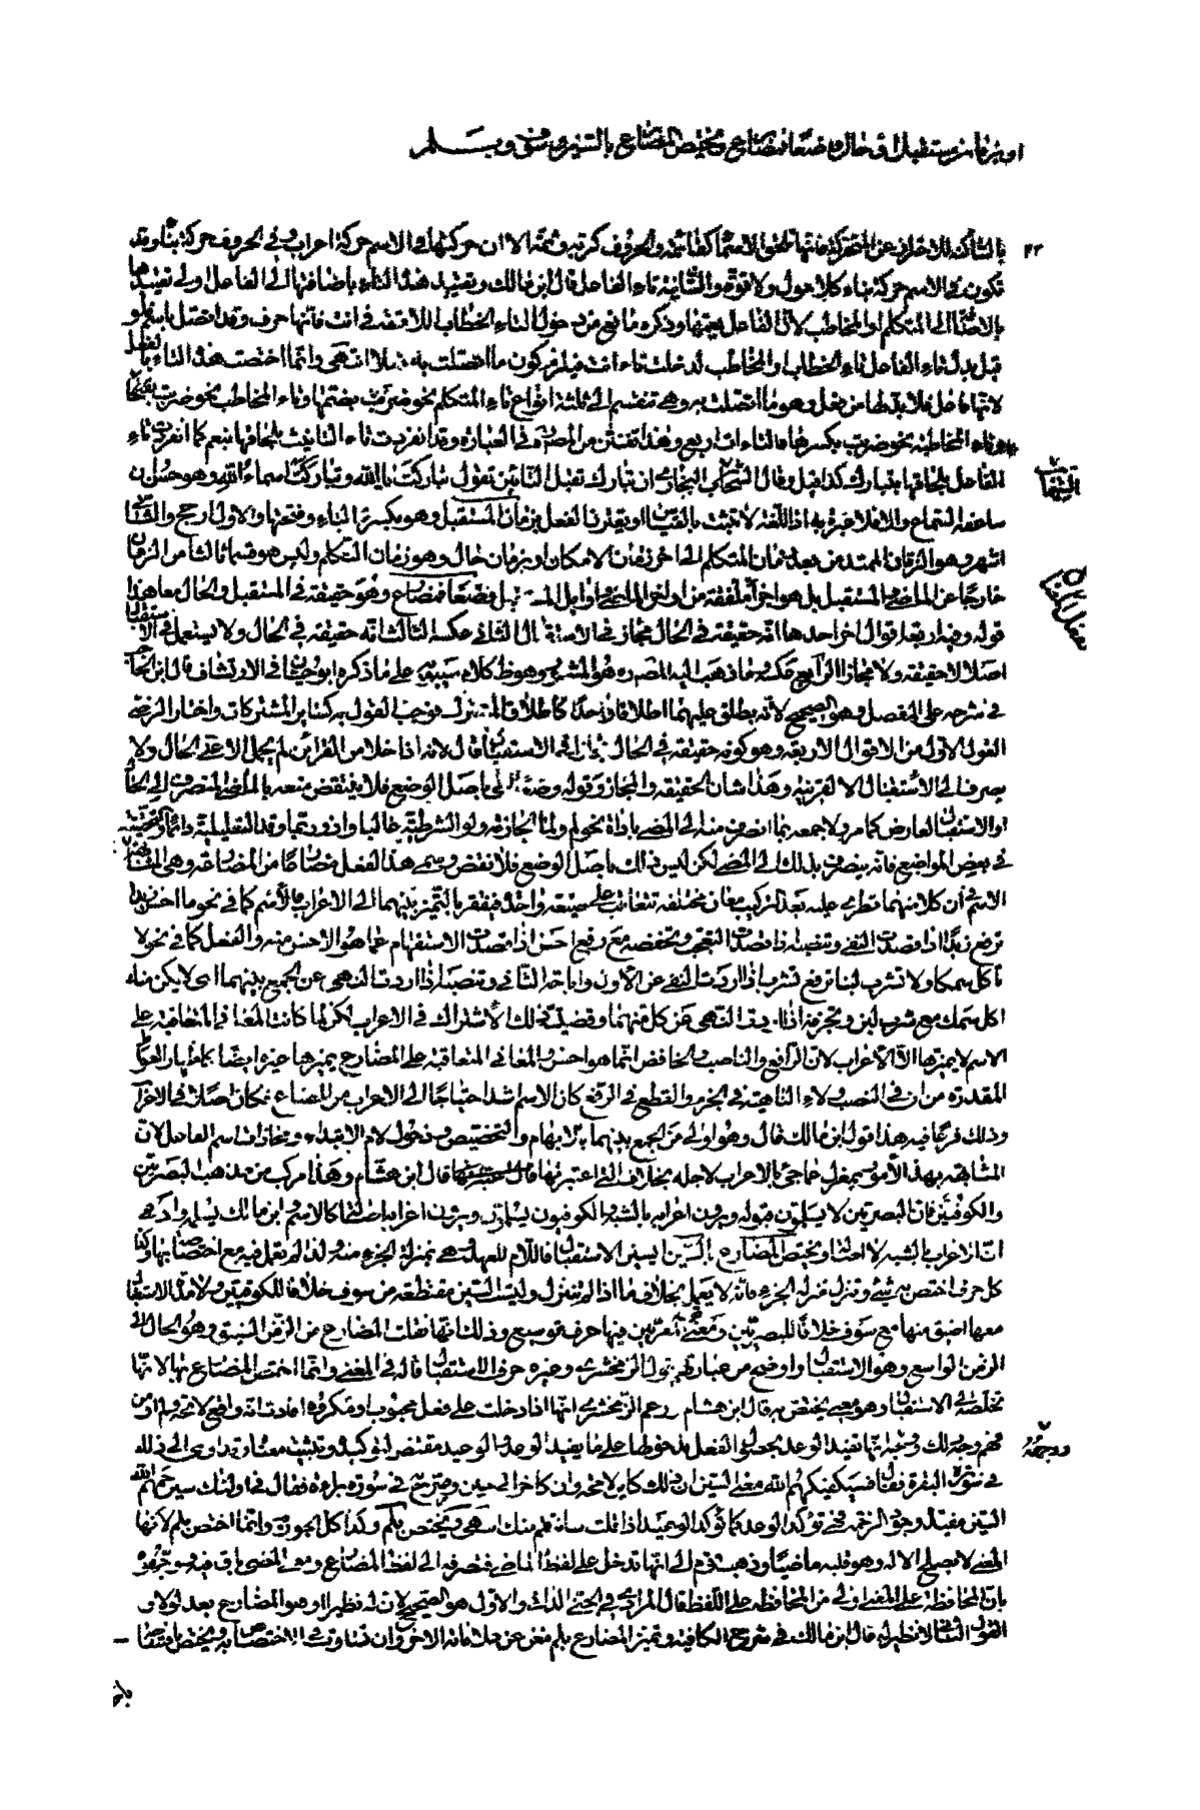 او بزمان مستقبل او حال وضعا فمضارع ويختص المضارع بالسين وسوف و بلم
٤٣
بالساكنة للاحتراز عن المتحركة فانها تلحق الاسماء كقائمة والحروف كربت وثمت الا ان حركتها في الاسم حركة اعراب وفي الحروف حركة بناء وقد
تكون في الاسم حركة بناء كلا حول ولا قوة والثانية تاء الفاعل قال ابن مالك وتقييد هذا التاء باضافتها الى الفاعل اولى من تقييدها
بالاضافة الى المتكلم او المخاطب لان الفاعل يعمها وذكره مانع من دخول التاء الخطاب اللاحقة في انت فانها حرف وقد اتصل باسم ولو
قيل بدل تاء الفاعل تاء الخطاب او المخاطب لدخلت تاء انت فيلزم كون ما اتصلت به فعلا انتهى وانما اختصت هذه التاء بالفعل
لانها فاعل فلا بد لها من فعل وهو ما اتصلت به وهي تنقسم الى ثلثة انواع تاء المتكلم نحو ضربت بضمها وتاء المخاطب نحو ضربت بفتحها
وتاء المخاطبة نحو ضربت بكسرها فالتاءات اربع وهذا تفنن من المصنف في العبارة وقد انفردت تاء التانيث بلحاقها بنعم كما انفردت تاء
الفاعل بلحاقها بتبارك كذا قيل وقال الشهاب البجائي ان تبارك تقبل التائين تقول تباركت يا الله وتباركت اسماء الله وهو حسن ان
ساعفه السماع والا فلا عبرة به اذ اللغة لا تثبت بالقياس او يقترن الفعل بزمان المستقبل وهو بكسر الباء وفتحها والاول ارجح والثاني
اشهر وهو الزمان الممتد من بعد زمان المتكلم الى اخر زمان الامكان او بزمان حال وهو زمان التكلم وليس هو قسما ثالثا من الزمان
خارجا عن الماضي والمستقبل بل هو اجزاء ملفقة من اواخر الماضي واوايل المستقبل فضعا فمضارع وهو حقيقة في المستقبل والحال معا هذا
قوله وفيه اربعة اقوال اخر احدها انه حقيقة في الحال مجاز في الاستقبال الثاني عكسه الثالث انه حقيقة في الحال ولا يستعمل في الاستقبال
اصلا لا حقيقة ولا مجازا الرابع عكسه وما ذهب اليه المصنف هو المشهور وهو ظ كلام سيبويه على ما ذكره ابو حيان في الارتشاف قال ابن الحاجب
في شرحه على المفصل وهو الصحيح لانه يطلق عليهما اطلاقا واحدا كاطلاق المشترك فوجب القول به كسائر المشتركات واختار الرضي
القول الاول من الاقوال الاربعة وهو كونه حقيقة في الحال مجازا في الاستقبال قال لانه اذا خلا من القرائن لم يحمل الا على الحال ولا
يصرف الى الاستقبال الا لقرينة وهذا شان الحقيقة والمجاز وقوله وضعا اي باصل الوضع فلا ينتقض منعه بالماضي المنصرف الى الحال
او الاستقبال لعارض كما مر ولا جمعه بما انصرف منه الى المضي باداة نحو لم ولما الجازمة ولو الشرطية غالبا واذ وربما وقد التقليلية دائما والتحقيقية
في بعض المواضع فانه ينصرف بذلك الى المضي لكن ليس ذلك باصل الوضع فلا نقض وسمي هذا الفعل مضارعا من المضارعة وهي المشابهة
الاسم ان كلا منهما تطرأ عليه بعد التركيب معان مختلفة تتعاقب على صيغة واحدة فيفتقر بالتميز بينهما الى الاعراب فالاسم كما في نحو ما احسن زيدا
ترفع زيدا اذا قصدت النفي وتنصبه اذا قصدت التعجب وتخفضه مع رفع احسن اذا قصدت الاستفهام عما هو الاحسن منه والفعل كما في نحو لا
تاكل سمكا ولا تشرب لبنا ترفع تشرب اذا اردت النهي عن الاول واباحة الثاني وتنصبه اذا اردت النهي عن الجمع بينهما اي لا يكن منك
اكل سمك مع شرب لبن وتجزمه اذا اردت النهي عن كل منهما وقضية ذلك الاشتراك في الاعراب لكن لما كانت المعاني المتعاقبة على
الاسم لا يميزها الا الاعراب لان الرافع والناصب والخافض انما هو احسن والمعاني المتعاقبة على المضارع يميزها غيره ايضا كاظهار العوامل
المقدرة من ان في النصب ولاء الناهية في الجزم والقطع في الرفع كان الاسم اشد احتياجا الى الاعراب من المضارع فكان اصلا في الاعراب
وذلك فرعا فيه هذا قول ابن مالك قال وهو اولى من الجمع بينهما بالابهام والتخصيص ودخول لام الابتداء ومجاراة اسم الفاعل لان
المشابهة بهذه الامور بمعزل عما جيء بالاعراب لاجله بخلاف التي اعتبرتها قال ابن هشام وهذا مركب من مذهب البصريين
والكوفيين فان البصريين لا يسلمون قبوله ويرون اعرابه بالشبه والكوفيون يسلمون ويرون اعرابه اصلا كالاسم وابن مالك يسلم وادعى
ان الاعراب بالشبه لا اصلا ويختص المضارع بالسين اي سين الاستقبال فاللام للعهد وهي بمنزلة الجزء منه ولذا لم تعمل فيه مع اختصاصها به وكذا
كل حرف اختص بشيء وتنزل منزلة الجزء فانه لا يعمل بخلاف ما اذا لم يتنزل وليست السين مقتطعة من سوف خلافا للكوفيين ولا مدة الاستقبال
معها اضيق منها مع سوف خلافا للبصريين ومعنى قول المعربين فيها حرف توسيع وذلك انها نقلت المضارع من الزمن الضيق وهو الحال الى
الزمن الواسع وهو الاستقبال واوضح من عبارتهم قول الزمخشري وغيره حرف الاستقبال قاله في المغني وانما اختص المضارع بها لانها
تخلصه الى الاستقبال وهو معنى يختص به قال ابن هشام زعم الزمخشري انها اذا دخلت على فعل محبوب او مكروه افادت انه واقع لا محالة ولم ار من
فهم وجه ذلك ووجهه انها تفيد الوعد بحصول الفعل فدخولها على ما يفيد الوعد او الوعيد مقتض لتوكيده وتثبيت معناه وقد اومى الى ذلك
في سورة البقرة فقال في فسيكفيكهم الله معنى السين ان ذلك كاين لا محالة وان تاخر الى حين وصرح في سورة براءة فقال في اولئك سيرحمهم الله
السين مفيدة وجود الرحمة فهي تؤكد الوعد كما تؤكد الوعيد اذا قلت سانتقم منك انتهى ويختص بلم وكذا كل الجوازم وانما اختص بلم لانها
لنفي لا يصلح الا له وهو قلبه ماضيا وذهب قوم الى انها تدخل على لفظ الماضي فتصرفه الى لفظ المضارع ومعنى المضي باق فيه ووجهوه
بان المحافظة على المعنى اولى من المحافظة على اللفظ قال المرادي في الجنى الداني والاول هو الصحيح لان له نظيرا وهو المضارع بعد لو ولا
القول الثاني لا نظير له قال ابن مالك في شرح الكافية وتميز المضارع بلم مغن عن علاماته الاخر وان تساوت في الاختصاص به ويختص بافتتاحه